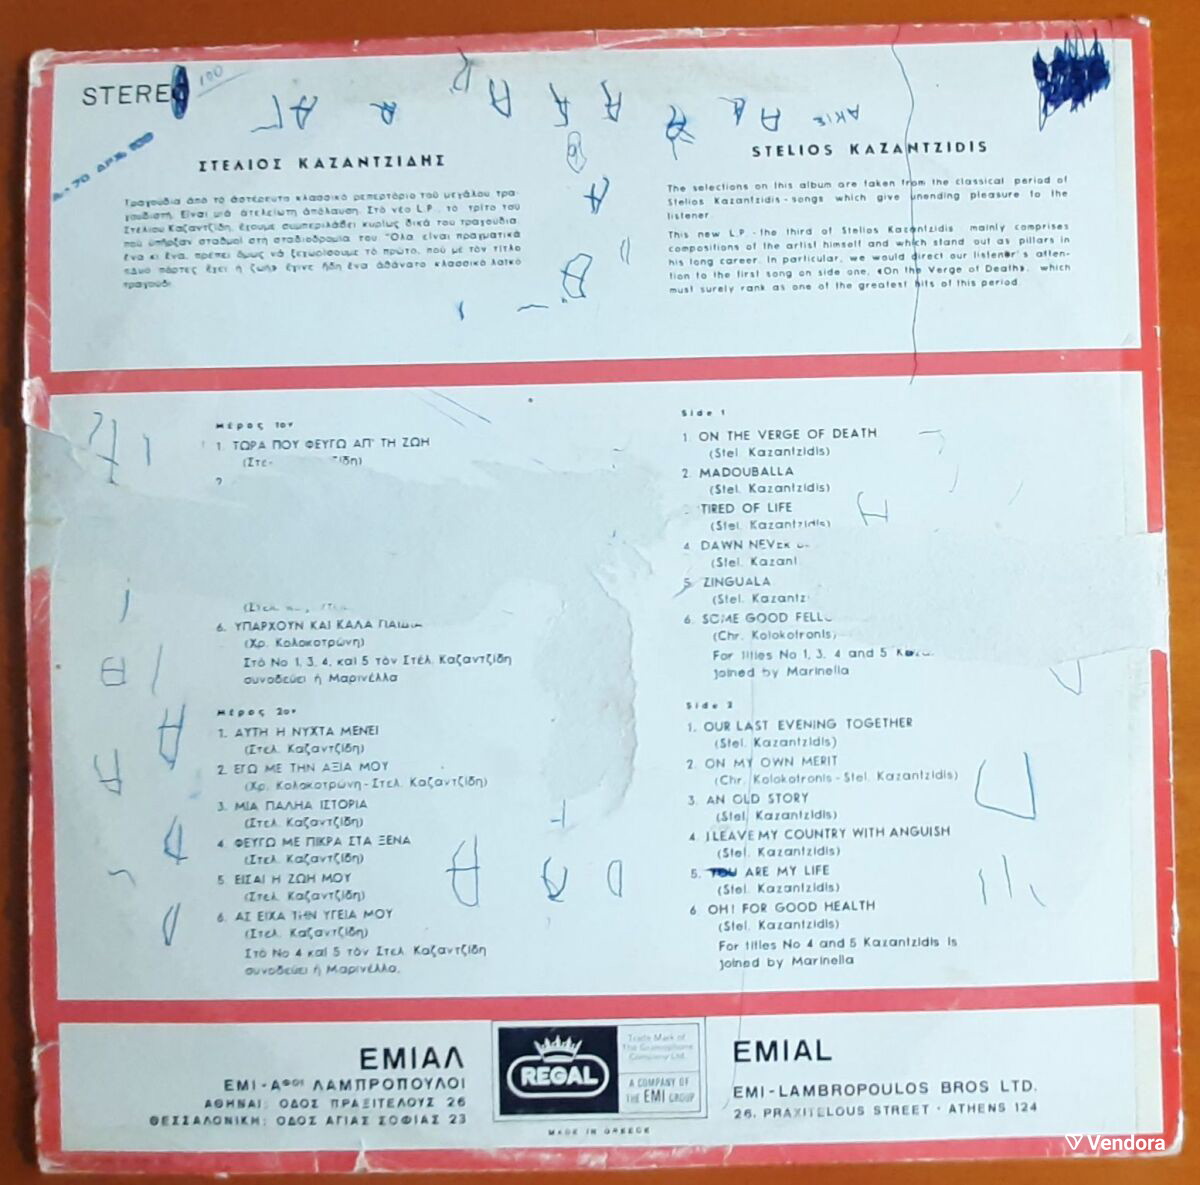 STEREO
100
ΣΤΕΛΙΟΣ ΚΑΖΑΝΤΖΙΔΗΣ
Τραγούδια άπό τό άστέρευτο κλασσικό ρεπερτόριο τοϋ μεγάλου τρα-
γουδιστή. Είναι μιά άτελείωτη άπόλαυση. Στό νέο L.P., τό τρίτο τοϋ
Στέλιου Καζαντζίδη, έχουμε συμπεριλάβει κυρίως δικά του τραγούδια,
πού ύπήρξαν σταθμοί στή σταδιοδρομία του. Όλα είναι πραγματικά
ένα κι ένα, πρέπει όμως νά ξεχωρίσουμε τό πρώτο, πού μέ τόν τίτλο
«Δυό πόρτες έχει ή ζωή» έγινε ήδη ένα άθάνατο κλασσικό λαϊκό
τραγούδι
ΑΚΙΣ
STELIOS KAZANTZIDIS
The selections on this album are taken from the classical period of
Stelios Kazantzidis - songs which give unending pleasure to the
listener
This new L.P - the third of Stelios Kazantzidis mainly comprises
compositions of the artist himself and which stand out as pillars in
his long career. In particular, we would direct our listener's atten-
tion to the first song on side one, «On the Verge of Death», which
must surely rank as one of the greatest hits of this period.
Μέρος 1ον
1. ΤΩΡΑ ΠΟΥ ΦΕΥΓΩ ΑΠ' ΤΗ ΖΩΗ
2.
6. ΥΠΑΡΧΟΥΝ ΚΑΙ ΚΑΛΑ ΠΑΙΔΙΑ
(Χρ. Κολοκοτρώνη)
Στό Νο 1, 3, 4, καί 5 τόν Στέλ. Καζαντζίδη
συνοδεύει ή Μαρινέλλα
Μέρος 2ον
1. ΑΥΤΗ Η ΝΥΧΤΑ ΜΕΝΕΙ
(Στελ. Καζαντζίδη)
2. ΕΓΩ ΜΕ ΤΗΝ ΑΞΙΑ ΜΟΥ
(Χρ. Κολοκοτρώνη - Στελ. Καζαντζίδη)
3. ΜΙΑ ΠΑΛΗΑ ΙΣΤΟΡΙΑ
(Στελ. Καζαντζίδη)
4. ΦΕΥΓΩ ΜΕ ΠΙΚΡΑ ΣΤΑ ΞΕΝΑ
(Στελ. Καζαντζίδη)
5. ΕΙΣΑΙ Η ΖΩΗ ΜΟΥ
(Στελ. Καζαντζίδη)
6. ΑΣ ΕΙΧΑ ΤΗΝ ΥΓΕΙΑ ΜΟΥ
(Στελ. Καζαντζίδη)
Στό Νο 4 καί 5 τόν Στελ. Καζαντζίδη
συνοδεύει ή Μαρινέλλα.
Side 1
1. ON THE VERGE OF DEATH
(Stel. Kazantzidis)
2. MADOUBALLA
(Stel. Kazantzidis)
TIRED OF LIFE
(Stel. Kazantzidis)
4. DAWN NEVER
(Stel. Kazant
5. ZINGUALA
(Stel. Kazantz
6. SOME GOOD FELL
(Chr. Kolokotronis)
For titles No 1, 3, 4 and 5
joined by Marinella
Side 2
1. OUR LAST EVENING TOGETHER
(Stel. Kazantzidis)
2. ON MY OWN MERIT
(Chr. Kolokotronis - Stel. Kazantzidis)
3. AN OLD STORY
(Stel. Kazantzidis)
4. I LEAVE MY COUNTRY WITH ANGUISH
(Stel. Kazantzidis)
5. YOU ARE MY LIFE
(Stel. Kazantzidis)
6. OH! FOR GOOD HEALTH
(Stel. Kazantzidis)
For titles No 4 and 5 Kazantzidis is
joined by Marinella
ΕΜΙΑΛ
ΕΜΙ - ΑΦΟΙ ΛΑΜΠΡΟΠΟΥΛΟΙ
ΑΘΗΝΑΙ: ΟΔΟΣ ΠΡΑΞΙΤΕΛΟΥΣ 26
ΘΕΣΣΑΛΟΝΙΚΗ: ΟΔΟΣ ΑΓΙΑΣ ΣΟΦΙΑΣ 23
REGAL
Trade Mark of
The Gramophone
Company Ltd.
A COMPANY OF
THE EMI GROUP
MADE IN GREECE
EMIAL
EMI - LAMBROPOULOS BROS LTD.
26, PRAXITELOUS STREET · ATHENS 124
Vendora